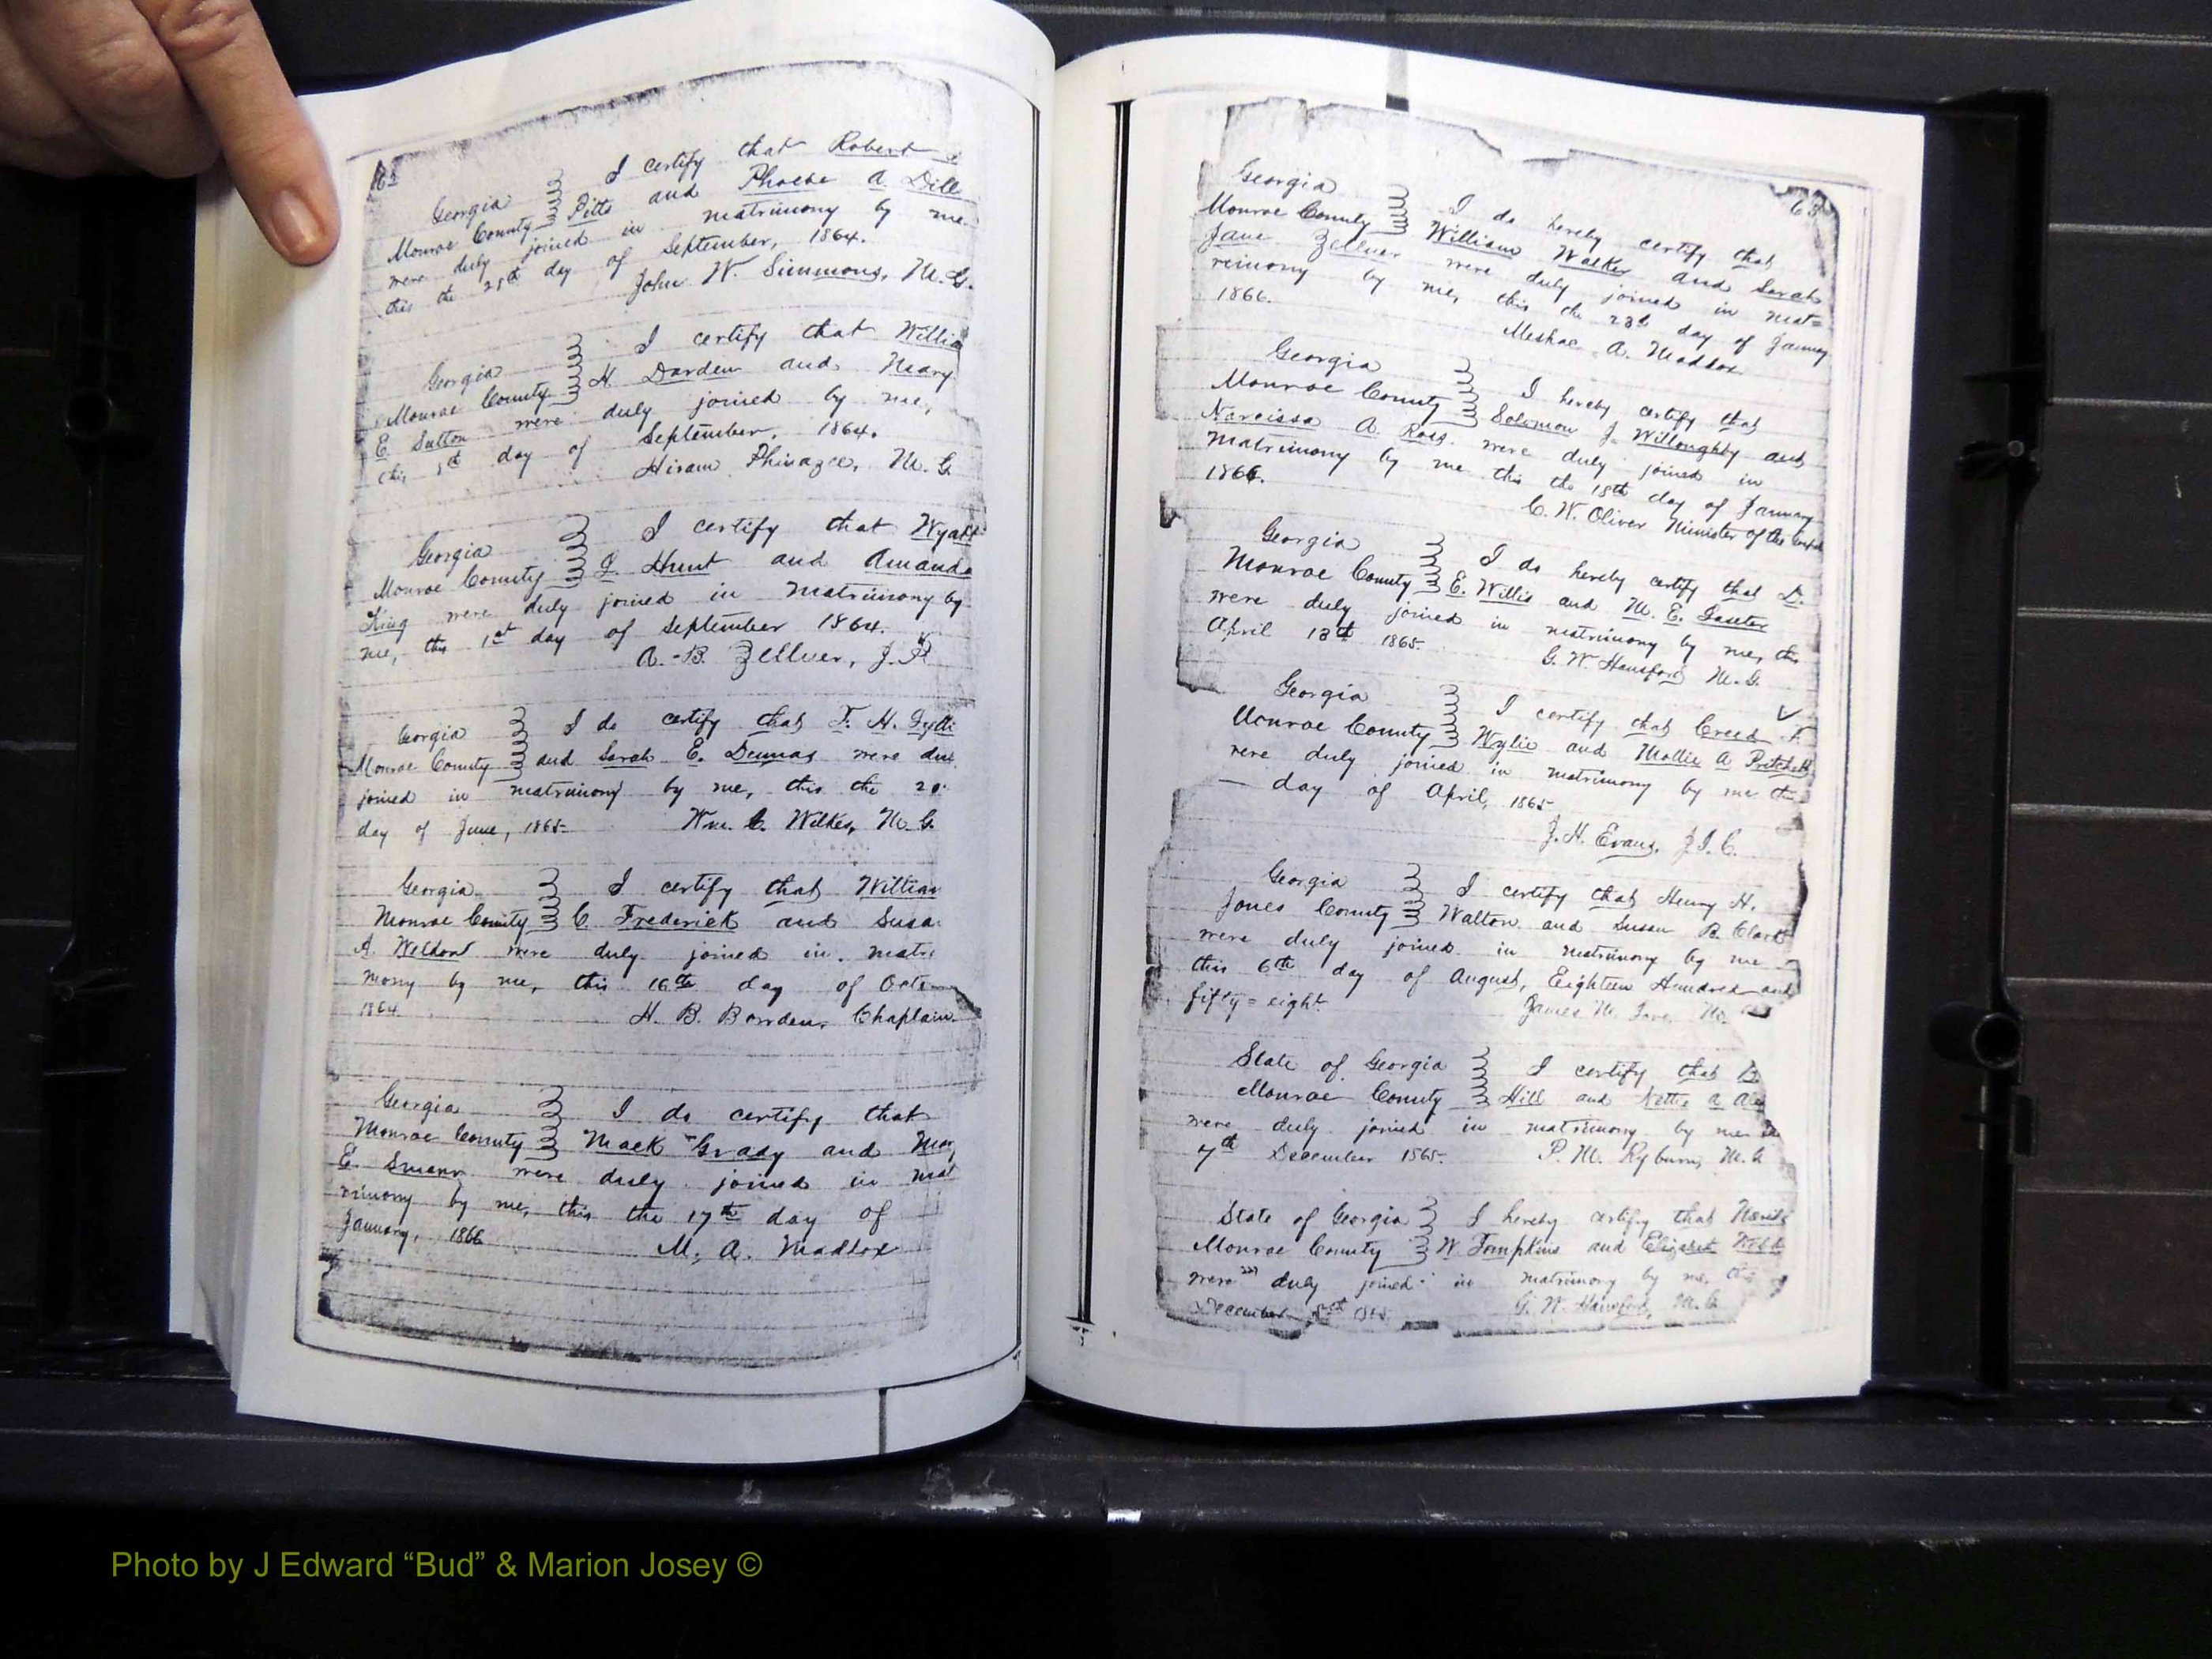 62
I certify that Robert
Georgia
Monroe County Pitts and Phoebe A. Dill
were duly joined in matrimony by me
this the 25th day of September, 1864.
John W. Simmons, M. G.
I certify that Willia
Georgia
Monroe County H. Darden and Mary
E. Sutton were duly joined by me,
this day of September, 1864.
Hiram Phinazee, M. G.
I certify that Wyatt
Georgia
Monroe County J. Hunt and Amanda
King were duly joined in matrimony by
me, this 1st day of September 1864.
A. B. Zellner, J. P.
Georgia I do certify that T. H.
Monroe County and Sarah E. Dumas were
joined in matrimony by me, this the 20
day of June, 1865 Wm. C. Wilkes, M. G.
Georgia I certify that William
Monroe County C. Frederick and Susa
A. Weldon were duly joined in matri
mony by me, this 16th day of Octo
1864. H. B. Bowden, Chaplain.
Georgia I do certify that
Monroe County Mack Grady and
E. were duly joined in mat
rimony by me, this the 17th day of
January, 1866 M. A. Maddox
63
Georgia I do hereby certify that
Monroe County William Walker and Sarah
Jane Zellner were duly joined in mat=
rimony by me, this the 23d day of January
1866. Meshac A. Maddox
Georgia I hereby certify that
Monroe County Solomon J. Willoughby and
Narcissa A. Ross were duly joined in
matrimony by me this the 18th day of January
1866. C. W. Oliver Minister of the
Georgia I do hereby certify that D.
Monroe County E. Willis and M. E.
were duly joined in matrimony by me, this
April 13th 1865. G. W. Hansford M. G.
Georgia I certify that Creed F.
Monroe County Wylie and Mollie A Pritchett
were duly joined in matrimony by me
— day of April, 1865
J. H. Evans, J. I. C.
Georgia I certify that Henry H.
Jones County Walton and Susan B. Clark
were duly joined in matrimony by me
this 6th day of August, Eighteen Hundred and
fifty=eight. James M.
State of Georgia I certify that
Monroe County Hill and Nettie A
were duly joined in matrimony by me
7th December 1865. P. M. Ryburn, M. G
State of Georgia I hereby certify that
Monroe County W. Tompkins and Elizabet
were duly joined in matrimony by me,
December G. W. Hansford, M. G.
Photo by J Edward “Bud” & Marion Josey ©